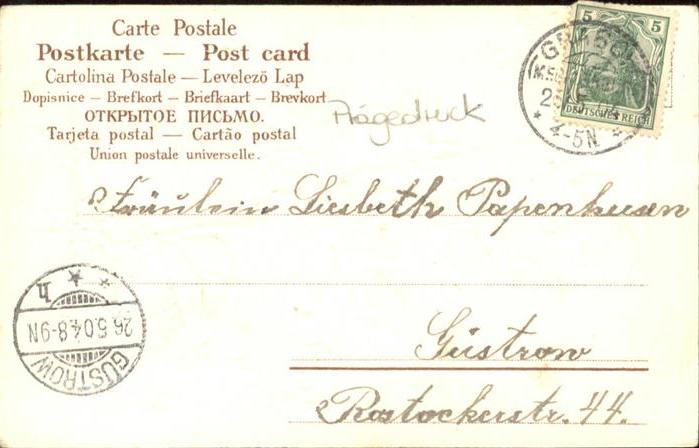 Carte Postale
Postkarte — Post card
Cartolina Postale — Levelező Lap
Dopisnice — Brefkort — Briefkaart — Brevkort
ОТКРЫТОЕ ПИСЬМО.
Tarjeta postal — Cartão postal
Union postale universelle.
Prägedruck
5 5
DEUTSCHES REICH
4-5N
Fräulein Liesbeth Papenhusen
h
26.5.04.8-9N
GÜSTROW
Güstrow
Rostockerstr. 44.